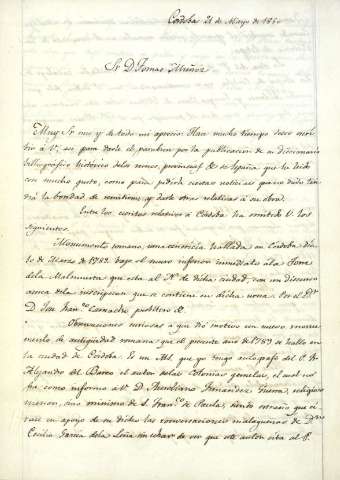 Cordoba 21 de Mayo de 18
Sr D. Tomas Muñoz
Muy Sr mio y de todo mi aprecio: Hace mucho tiempo deseo escri-
bir á V. asi para darle el parabien por la publicacion de su diccionario
bibliografico historico de los reinos, provincias &c de España que he leido
con mucho gusto, como para pedirle ciertas noticias que no dudo ten-
drá la bondad de remitirme y darle otras relativas á su obra.
Entre los escritos relativos á Córdoba ha omitido V. los
siguientes.
Monumento romano, una noticia hallada en Córdoba dia
10 de Marzo de 1789. bajo el muro inferior inmediato á la Torre
de la Malmuerta que esta al N. de dicha ciudad, con un discurso
acerca de la inscripcion que se contiene en dicha urna. Por el
D. Jose Franco Camacho presbitero &
Observaciones curiosas á que dió motivo un nuevo monu-
mento de antigüedad romana que el presente año de 1789 se halló en
la ciudad de Córdoba. Es un MS. que yo tengo autografo del P. Fr
Alejandro del Barco el autor de las Colonias gemelas, el cual no
fue como informó á V. D. Aureliano Fernandez Guerra, religioso
menor, sino minimo de S. Franco de Paula, siendo extraño que ci-
tase en apoyo de su dicho las conversaciones malagueñas de D.
Cecilio Garcia de la Leña sin echar de ver que este autor cita al P.